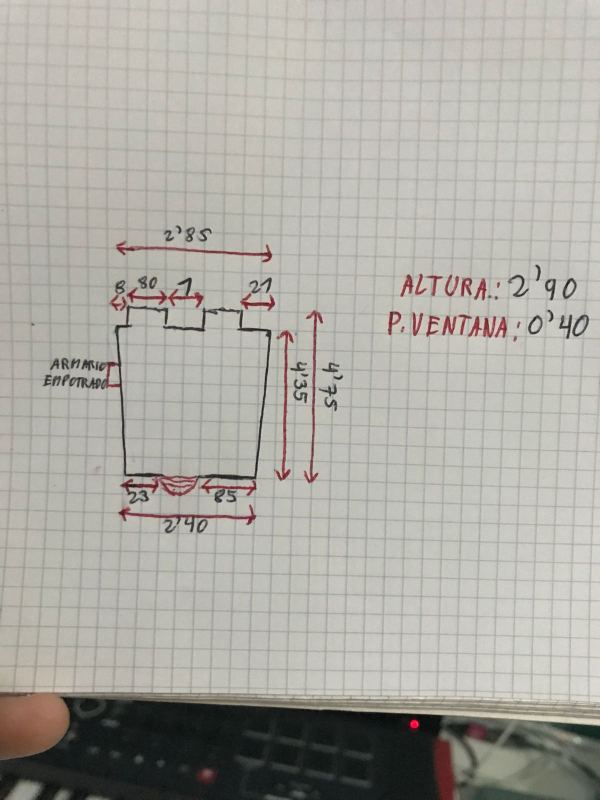 2'85
8 80 1 21
ALTURA.: 2'90
P. VENTANA: 0'40
ARMARIO
EMPOTRADO
4'35
4'75
23 85
2'40